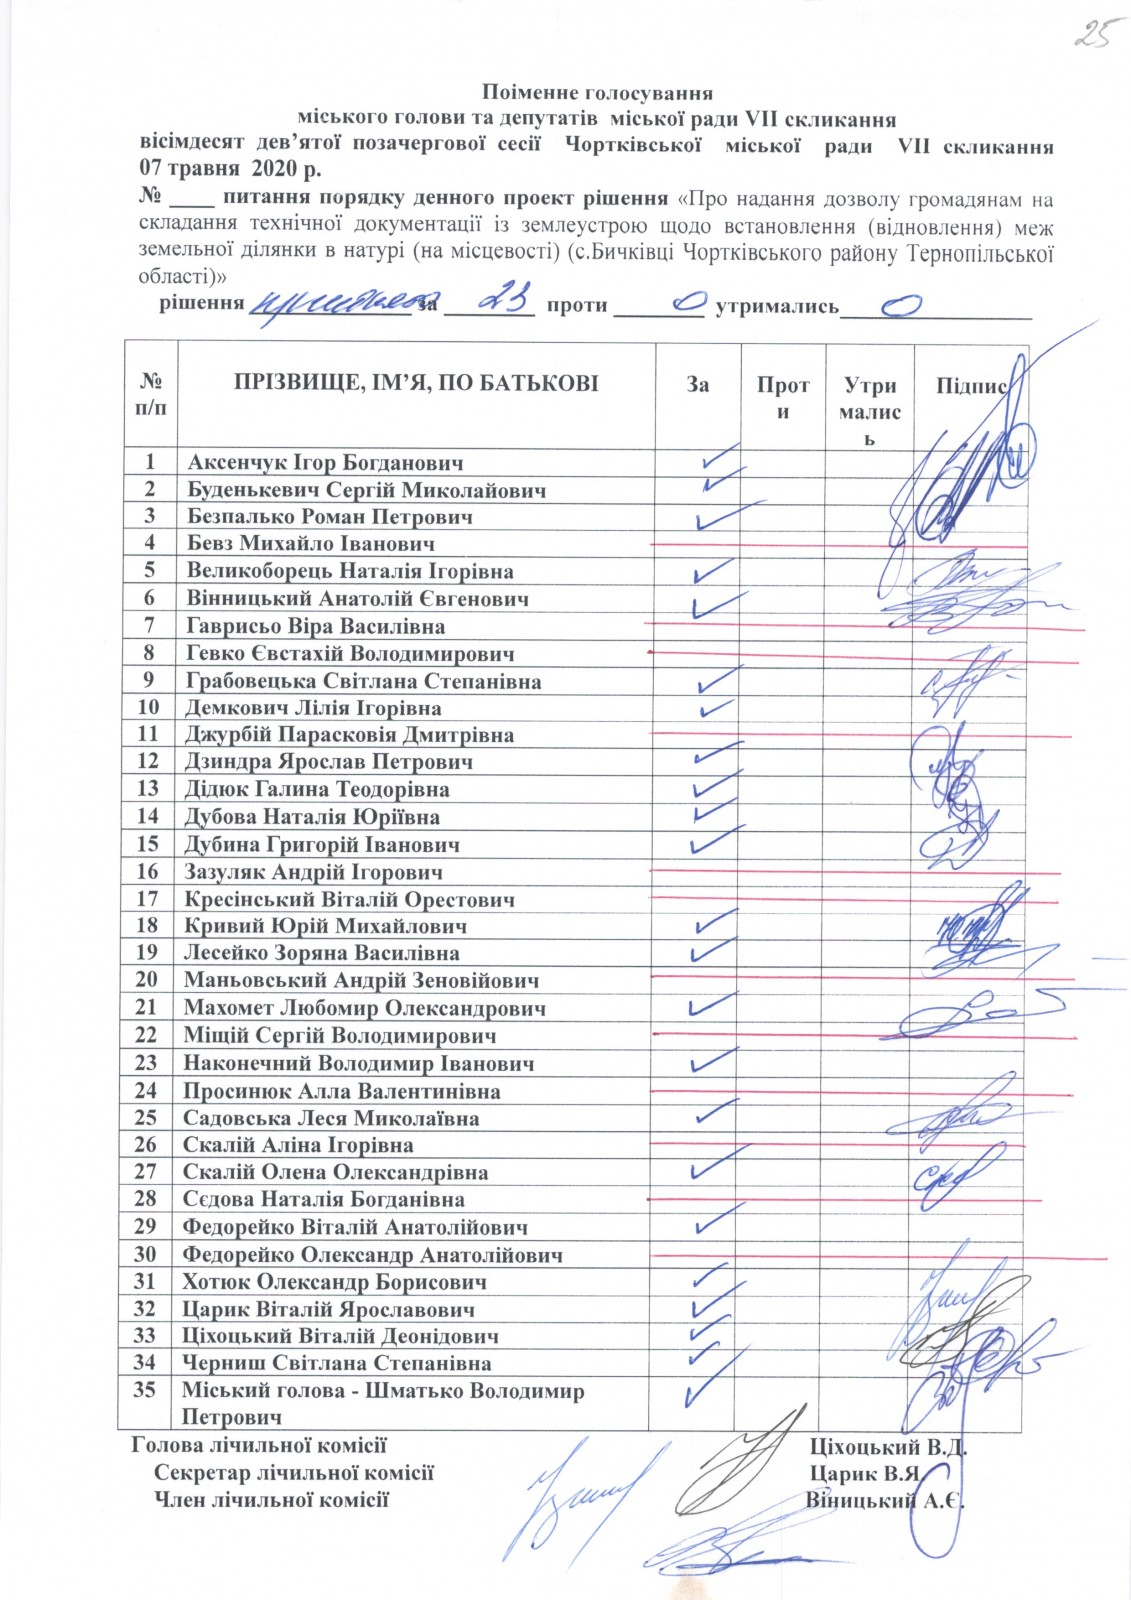 25
Поіменне голосування
міського голови та депутатів міської ради VII скликання
вісімдесят дев’ятої позачергової сесії Чортківської міської ради VII скликання
07 травня 2020 р.
№ ____ питання порядку денного проект рішення «Про надання дозволу громадянам на
складання технічної документації із землеустрою щодо встановлення (відновлення) меж
земельної ділянки в натурі (на місцевості) (с.Бичківці Чортківського району Тернопільської
області)»
рішення прийнято за 23 проти 0 утримались 0
№ п/п ПРІЗВИЩЕ, ІМ’Я, ПО БАТЬКОВІ За Проти Утрималися Підпис
1 Аксенчук Ігор Богданович
2 Буденькевич Сергій Миколайович
3 Безпалько Роман Петрович
4 Бевз Михайло Іванович
5 Великоборець Наталія Ігорівна
6 Вінницький Анатолій Євгенович
7 Гаврисьо Віра Василівна
8 Гевко Євстахій Володимирович
9 Грабовецька Світлана Степанівна
10 Демкович Лілія Ігорівна
11 Джурбій Парасковія Дмитрівна
12 Дзиндра Ярослав Петрович
13 Дідюк Галина Теодорівна
14 Дубова Наталія Юріївна
15 Дубина Григорій Іванович
16 Зазуляк Андрій Ігорович
17 Кресінський Віталій Орестович
18 Кривий Юрій Михайлович
19 Лесейко Зоряна Василівна
20 Маньовський Андрій Зеновійович
21 Махомет Любомир Олександрович
22 Міщій Сергій Володимирович
23 Наконечний Володимир Іванович
24 Просинюк Алла Валентинівна
25 Садовська Леся Миколаївна
26 Скалій Аліна Ігорівна
27 Скалій Олена Олександрівна
28 Сєдова Наталія Богданівна
29 Федорейко Віталій Анатолійович
30 Федорейко Олександр Анатолійович
31 Хотюк Олександр Борисович
32 Царик Віталій Ярославович
33 Ціхоцький Віталій Деонідович
34 Черниш Світлана Степанівна
35 Міський голова - Шматько Володимир
Петрович
Голова лічильної комісії Ціхоцький В.Д.
Секретар лічильної комісії Царик В.Я.
Член лічильної комісії Віницький А.Є.